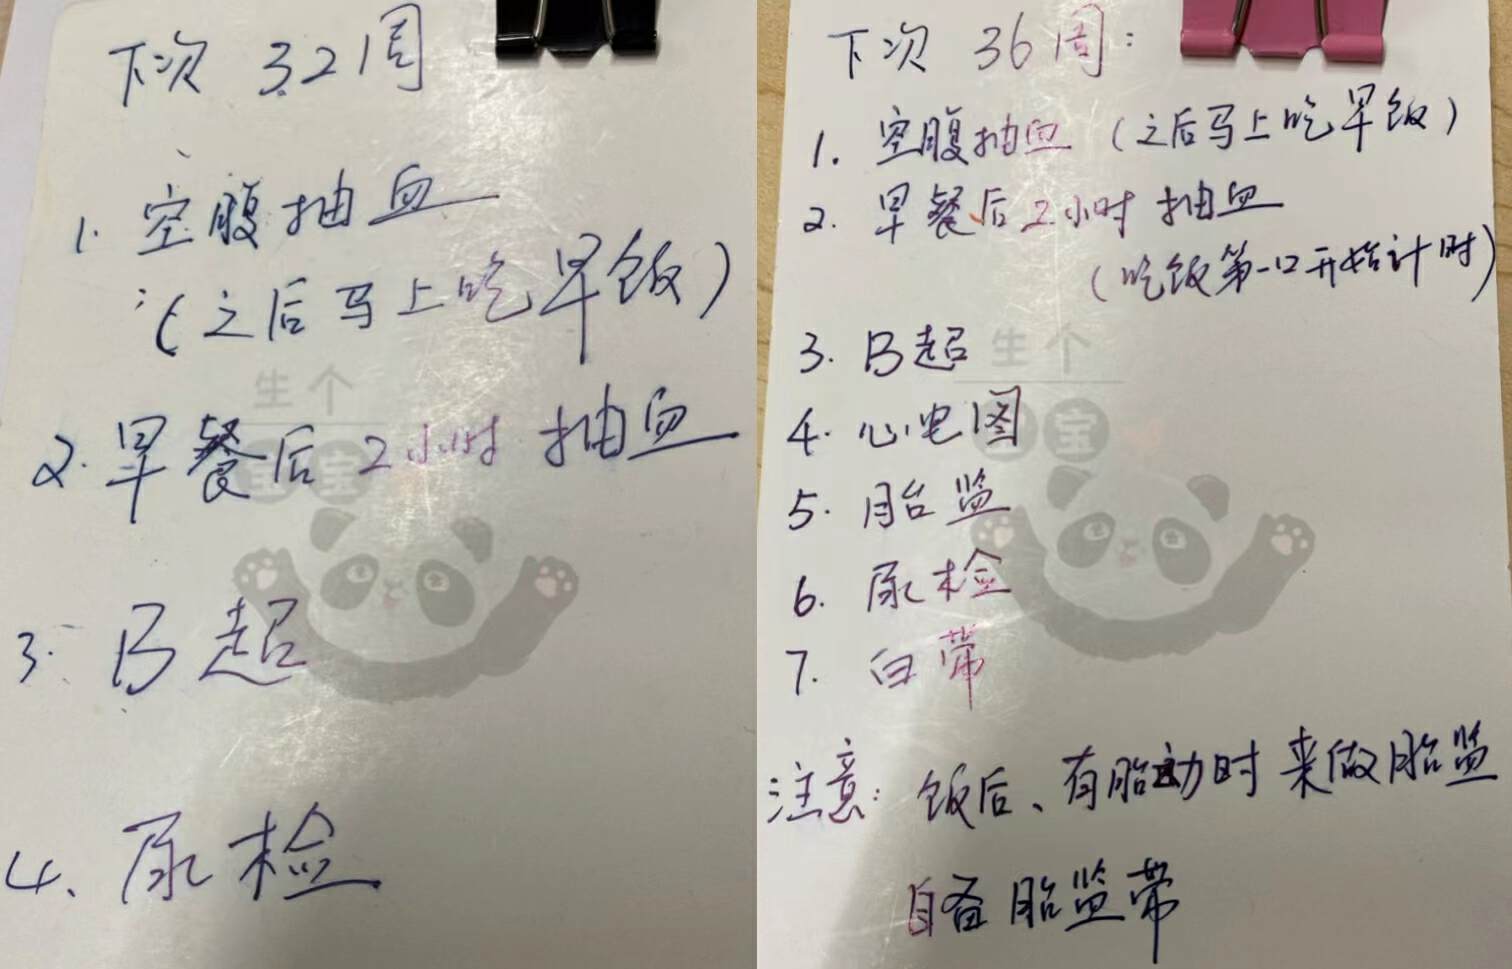 下次 32周
1. 空腹抽血
(之后马上吃早饭)
2. 早餐后2小时 抽血
3. B超
4. 尿检
生个
宝宝
下次 36周:
1. 空腹抽血 (之后马上吃早饭)
2. 早餐后2小时 抽血
(吃饭第一口开始计时)
3. B超
4. 心电图
5. 胎监
6. 尿检
7. 白带
注意: 饭后、有胎动时来做胎监
自备胎监带
生个
宝